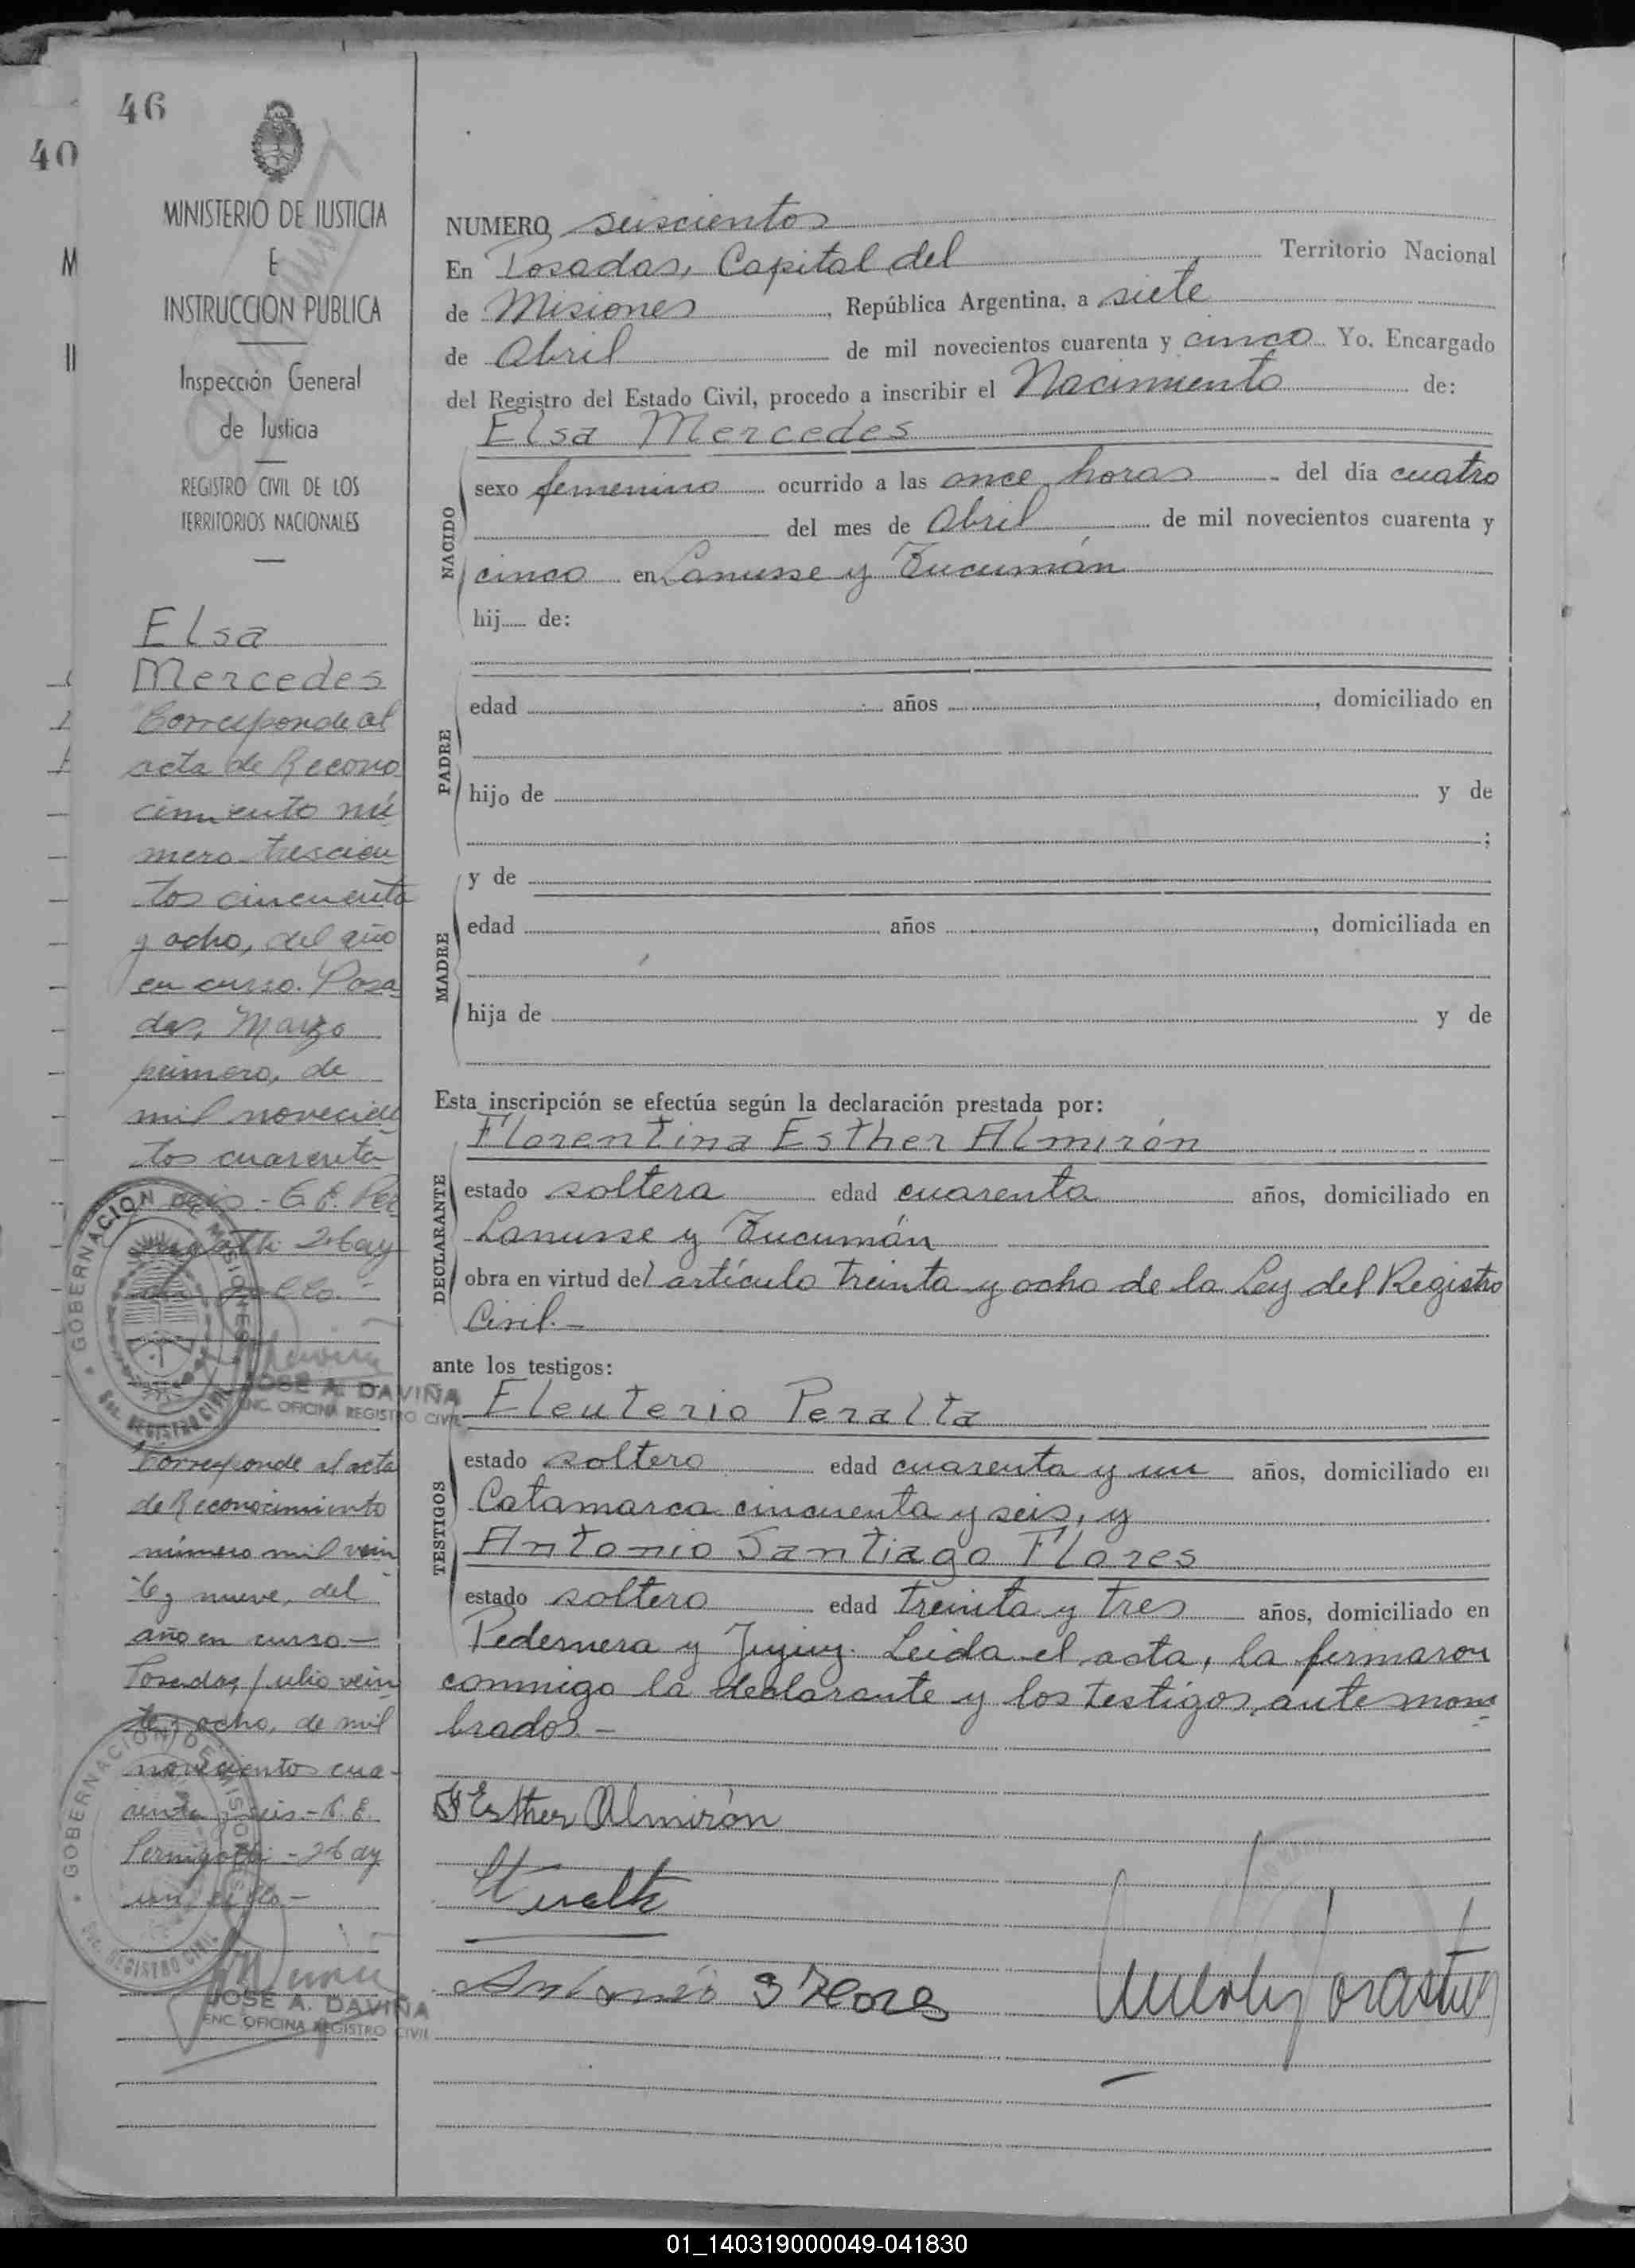 46
40
MINISTERIO DE JUSTICIA
E
INSTRUCCION PUBLICA
Inspección General
de Justicia
REGISTRO CIVIL DE LOS
TERRITORIOS NACIONALES
M
II
Elsa
Mercedes
Corresponde al
acta de Recono
cimiento nú
mero trescien
tos cincuenta
y ocho, del año
en curso. Posa
das, Marzo
primero, de
mil novecien
tos cuarenta
seis.-
GOBERNACION DE MISIONES
REGISTRO CIVIL
JOSE A. DAVIÑA
ENC. OFICINA REGISTRO CIVIL
Corresponde al acta
de Reconocimiento
número mil vein
te y nueve, del
año en curso-
Posadas, Julio vein
te y ocho, de mil
novecientos cua-
renta y seis.-
GOBERNACION DE MISIONES
REGISTRO CIVIL
JOSE A. DAVIÑA
ENC. OFICINA REGISTRO CIVIL
NUMERO seiscientos
En Posadas, Capital del Territorio Nacional
de Misiones, República Argentina, a siete
de Abril de mil novecientos cuarenta y cinco Yo, Encargado
del Registro del Estado Civil, procedo a inscribir el Nacimiento de:
Elsa Mercedes
NACIDO
sexo femenino ocurrido a las once horas del día cuatro
del mes de Abril de mil novecientos cuarenta y
cinco en Lanusse y Tucumán
hij de:
PADRE
edad años , domiciliado en
hijo de y de
;
MADRE
y de
edad años , domiciliada en
hija de y de
Esta inscripción se efectúa según la declaración prestada por:
Florentina Esther Almirón
DECLARANTE
estado soltera edad cuarenta años, domiciliado en
Lanusse y Tucumán
obra en virtud del artículo treinta y ocho de la Ley del Registro
Civil.-
ante los testigos:
Eleuterio Peralta
TESTIGOS
estado soltero edad cuarenta y un años, domiciliado en
Catamarca cincuenta y seis, y
Antonio Santiago Flores
estado soltero edad treinta y tres años, domiciliado en
Pedernera y Jujuy. Leida el acta, la firmaron
conmigo la declarante y los testigos antenom
brados.-
F Esther Almirón
Antonio S Flores
01_140319000049-041830